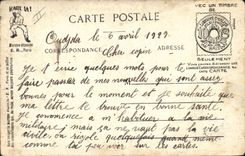 HALTE LÀ!
CARTE POSTALE
AVEC UN TIMBRE
DE
Oudjda le 6 avril 1927
CORRESPONDANCE
ADRESSE
Cher copin
SEULEMENT
CETTE CARTE
Je t'écris quelques mots pour te
faire passer de mes nouvelles que sont assez
bonnes pour le moment et je souhaite que
ma lettre te trouve en bonne santé,
je commence a m'habituer a la vie
militaire, mais sa ne vaut pas la vie
civile on rigole quelquefois quand même
comme tu peu voir sur les cartes